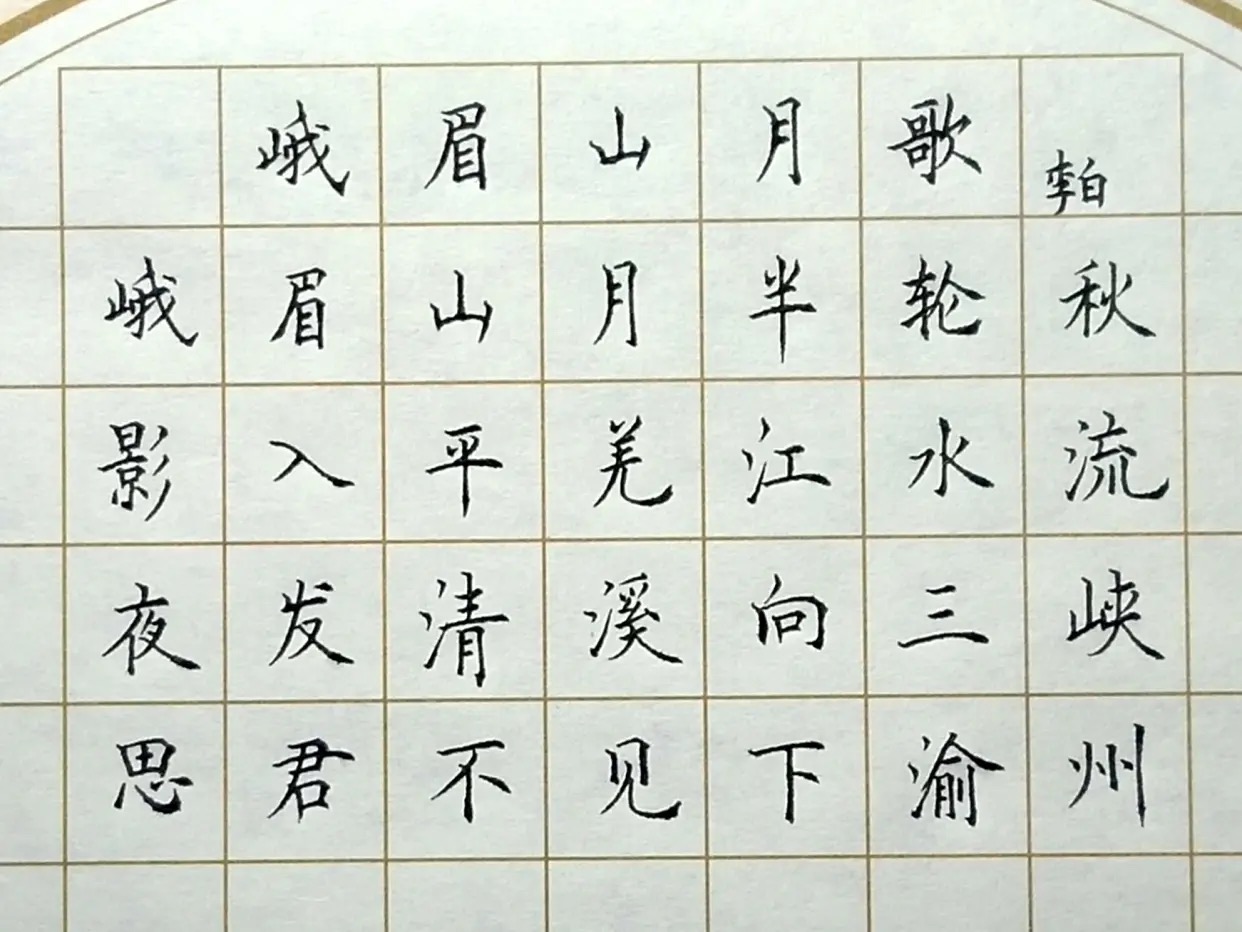 峨眉山月歌 李白
峨眉山月半轮秋
影入平羌江水流
夜发清溪向三峡
思君不见下渝州